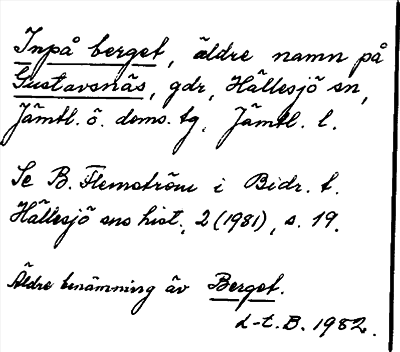 Inpå berget, äldre namn på
Gustavsnäs, gdr, Hällesjö sn,
Jämtl. ö. doms. tg, Jämtl. l.
Se B. Flemström i Bidr. t.
Hällesjö sns hist., 2 (1981), s. 19.
Äldre benämning äv Berget.
L-t. B. 1982.